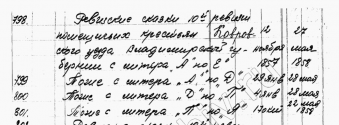 798. Ревизские сказки 10ой ревизии
помещичьих крестьян Ковров- 12 27
ского уезда Владимирской гу- ноября мая
бернии с литера „А" по „Е" 1857 1858
799 Тоже с литера „А" по „Д" 29 янв 28 мая
800 Тоже с литера „Д" по „П" 4 янв 28 мая
801. Тоже с литера „П" по „Я" 22 мая 1858